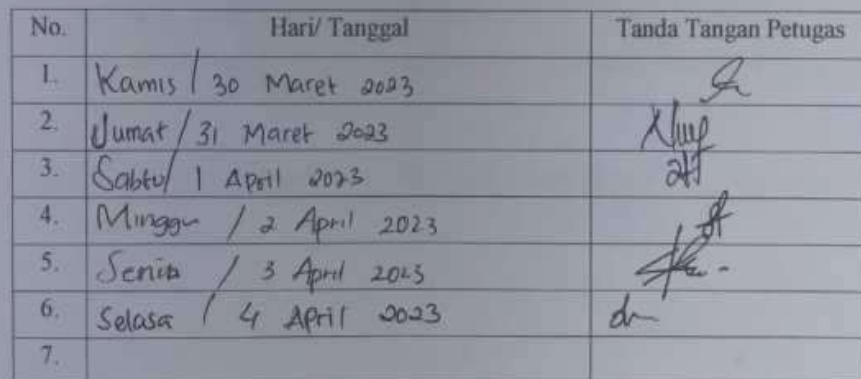 No. Hari/ Tanggal Tanda Tangan Petugas
1. Kamis / 30 Maret 2023
2. Jumat / 31 Maret 2023
3. Sabtu / 1 April 2023
4. Minggu / 2 April 2023
5. Senin / 3 April 2023
6. Selasa / 4 April 2023
7.